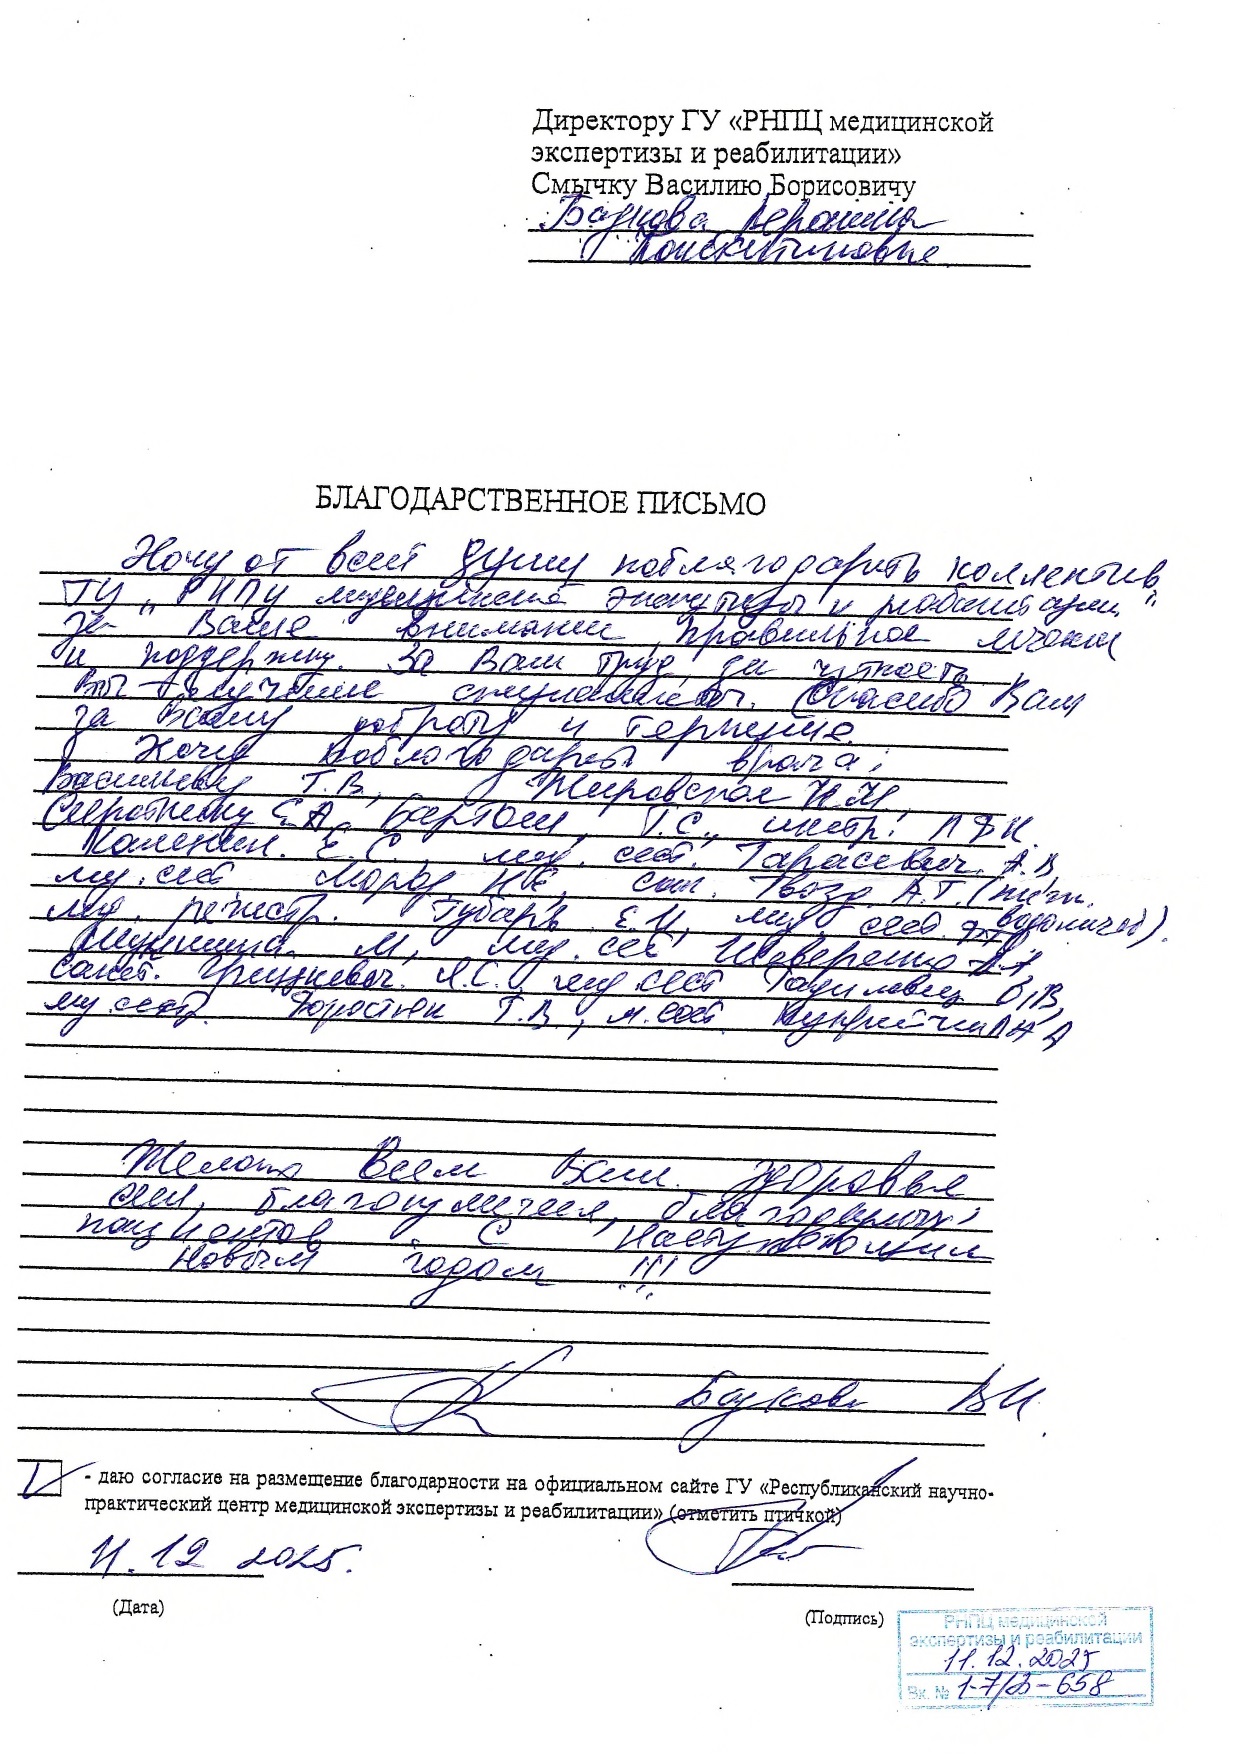 Директору ГУ «РНПЦ медицинской
экспертизы и реабилитации»
Смычку Василию Борисовичу
БЛАГОДАРСТВЕННОЕ ПИСЬМО
Хочу от всей душу поблагодарить коллектив
ГУ "РНПЦ медицинской экспертизы и реабилитации"
за Ваше внимание, правильное лечение
и поддержку. За Ваш труд, за чуткость
Вы лучшие специалисты. Спасибо Вам
за Вашу доброту и терпение.
Хочу поблагодарить врача:
Т.В., Жировская И.М.
Е.А., Бартош Т.С., инстр. ЛФК
Е.С., мед. сест. Тарасевич А.В,
мед. сест Мороз сан. Гвозд А.Т.
мед. регистр. Губарь Е.И, мед сест.
М, мед. сес Шаверенко
Грицкевич Я.С., мед. сест В,В,
мед. сест. Т.В., м. сест.
Желаю Всем Вам здоровья
благополучия, благодарных
пациентов С Наступающим
Новым годом !!!
- даю согласие на размещение благодарности на официальном сайте ГУ «Республиканский научно-
практический центр медицинской экспертизы и реабилитации» (отметить птичкой)
11.12 2025.
(Дата)
(Подпись)
РНПЦ медицинской
экспертизы и реабилитации
11.12.2025
Вх. № 1-7/Б-658